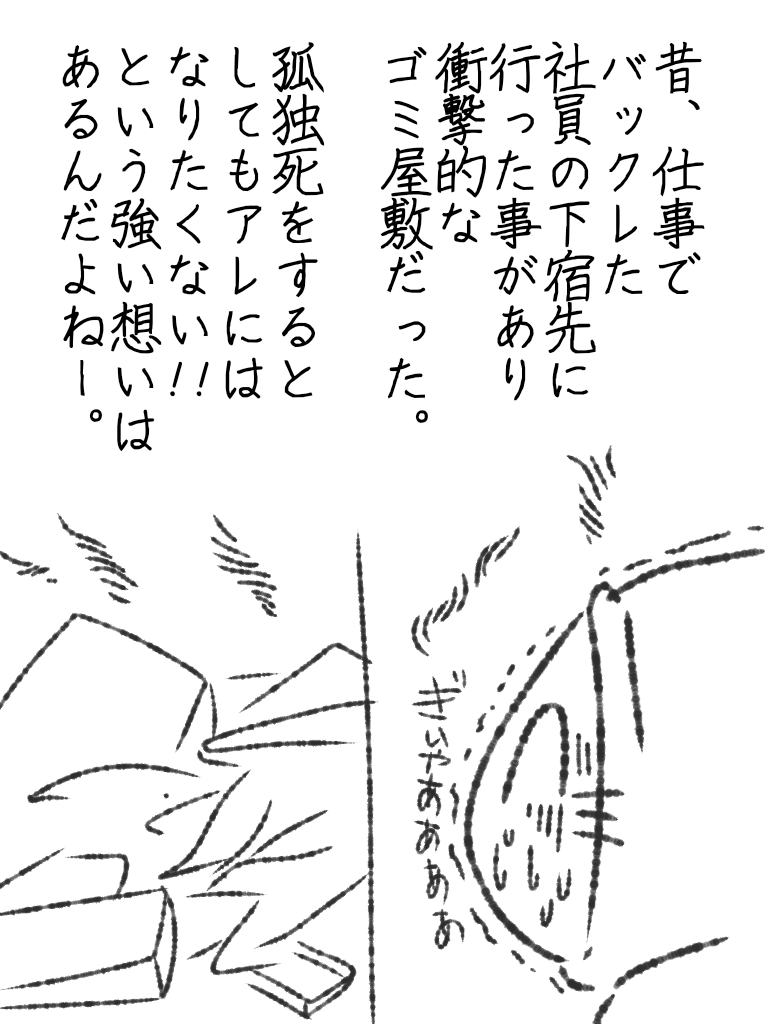 昔、仕事で
バックレた
社員の下宿先に
行った事があり
衝撃的な
ゴミ屋敷だった。
孤独死をすると
してもアレには
なりたくない!!
という強い想いは
あるんだよねー。
ぎぃやああああ